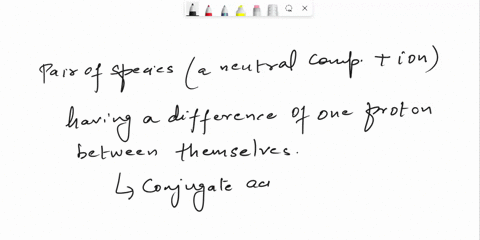 Pair of species (a neutral comp. + ion)
having a difference of one proton
between themselves.
↳ Conjugate ac